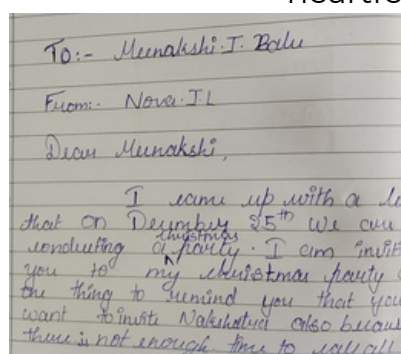 To:- Meenakshi.I.Balu
From:- Nova.I.L
Dear Meenakshi,
I came up with a
that on December 25th we are
conducting a christmas party. I am
you to my christmas party
the thing to remind you that you
want to invite Nakshatra also
there is not enough time to call all